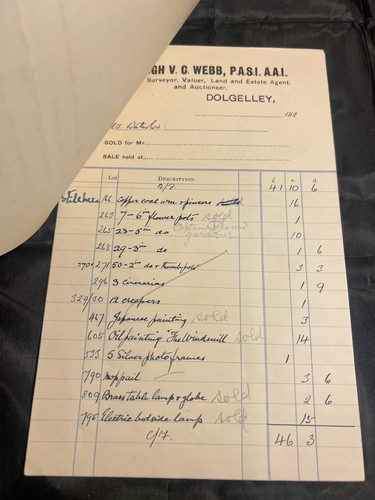 GH V. C. WEBB, P.A.S.I. A.A.I.
Surveyor, Valuer, Land and Estate Agent.
and Auctioneer.
DOLGELLEY, 192
SOLD for Mr
SALE held at
Lot DESCRIPTION. £ s. d.
B/F. 41 10 6
Copper coal urn & pincers 16
263 7-6in flower pots sold 1
265 23-5in do 10
268 29-3in do 1 6
270 & 271 50-2in do & thumb pots 3 3
296 3 cinerarias 1 9
329/30 12 creepers 1
467 Japanese painting sold 3
605 Oil painting The Windmill sold 14
535 5 Silver photo frames 1
790 Mop pail 3 6
809 Brass table lamp & globe sold 2 6
795 Electric bedside lamp sold 15
C/F. 46 3